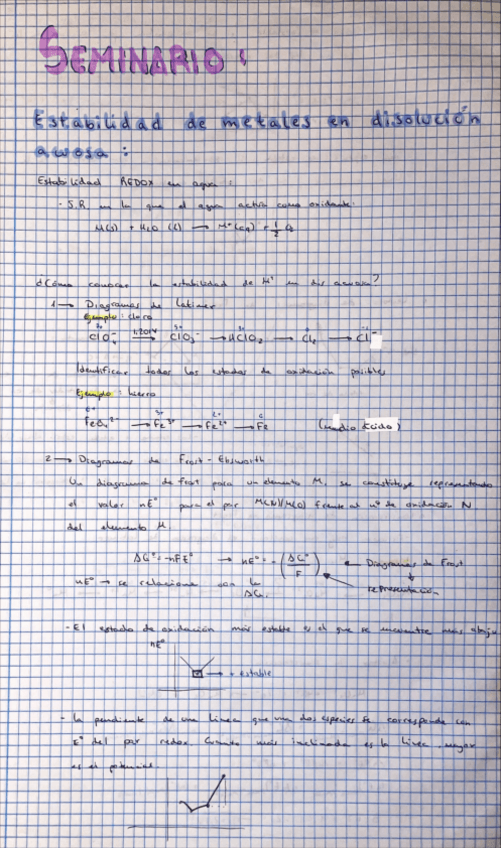 SEMINARIO:
Estabilidad de metales en disolución
acuosa:
Estabilidad REDOX en agua:
· S.R en la que el agua actúa como oxidante.
M(s) + H₂O (l) → M⁺(aq) + ½
¿Cómo conocer la estabilidad de M⁺ en dis acuosa?
1 → Diagramas de Latimer
Ejemplo: cloro
ClO₄⁻ 1.201V → ClO₃⁻ → HClO₂ → Cl₂ → Cl⁻
Identificar todos los estados de oxidación posibles
Ejemplo: hierro
FeO₄²⁻ → Fe³⁺ → Fe²⁺ → Fe (medio ácido)
2 → Diagramas de Frost-Ebsworth
Un diagrama de frost para un elemento M, se constituye representando
el valor nE° para el par M(N)/M(0) frente al nº de oxidación N
del elemento M.
ΔG° = -nFE° → nE° = -(ΔG°/F) ← Diagramas de Frost
nE° → se relaciona con la ΔG. representación
- El estado de oxidación más estable es el que se encuentre más abajo
nE°
→ + estable
- La pendiente de una línea que una dos especies se corresponde con
E° del par redox. Cuanto más inclinada es la línea, mayor
es el potencial.